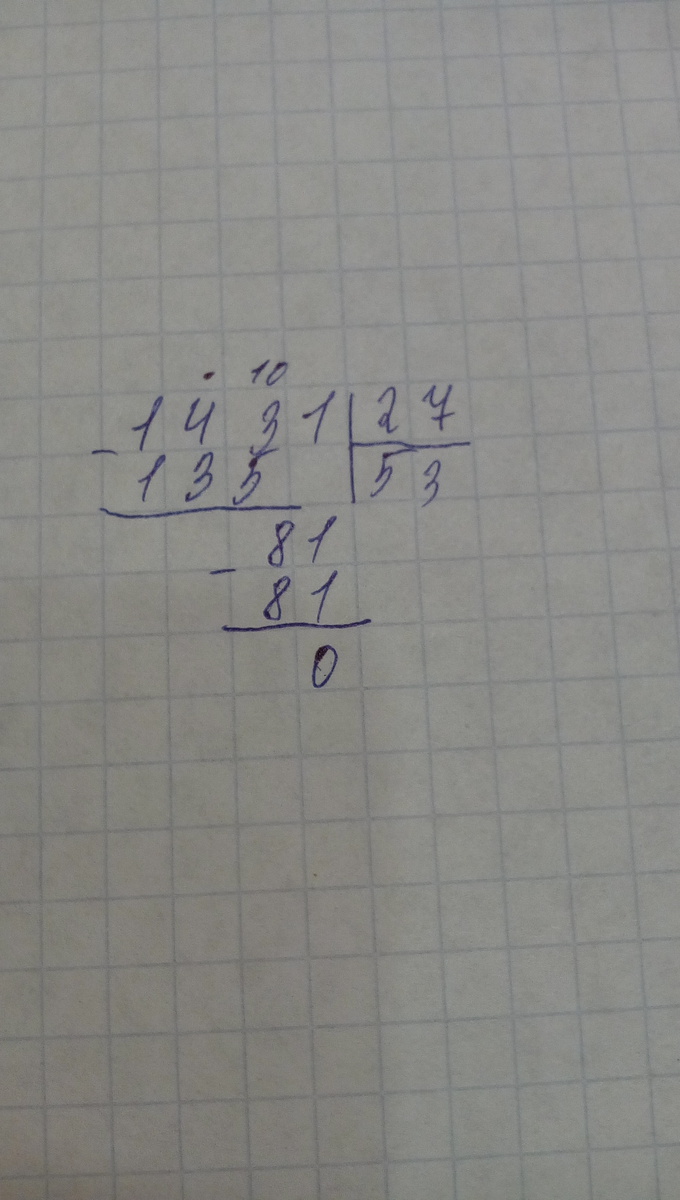 · 10
- 1431 | 27
135 | 53
- 81
81
0